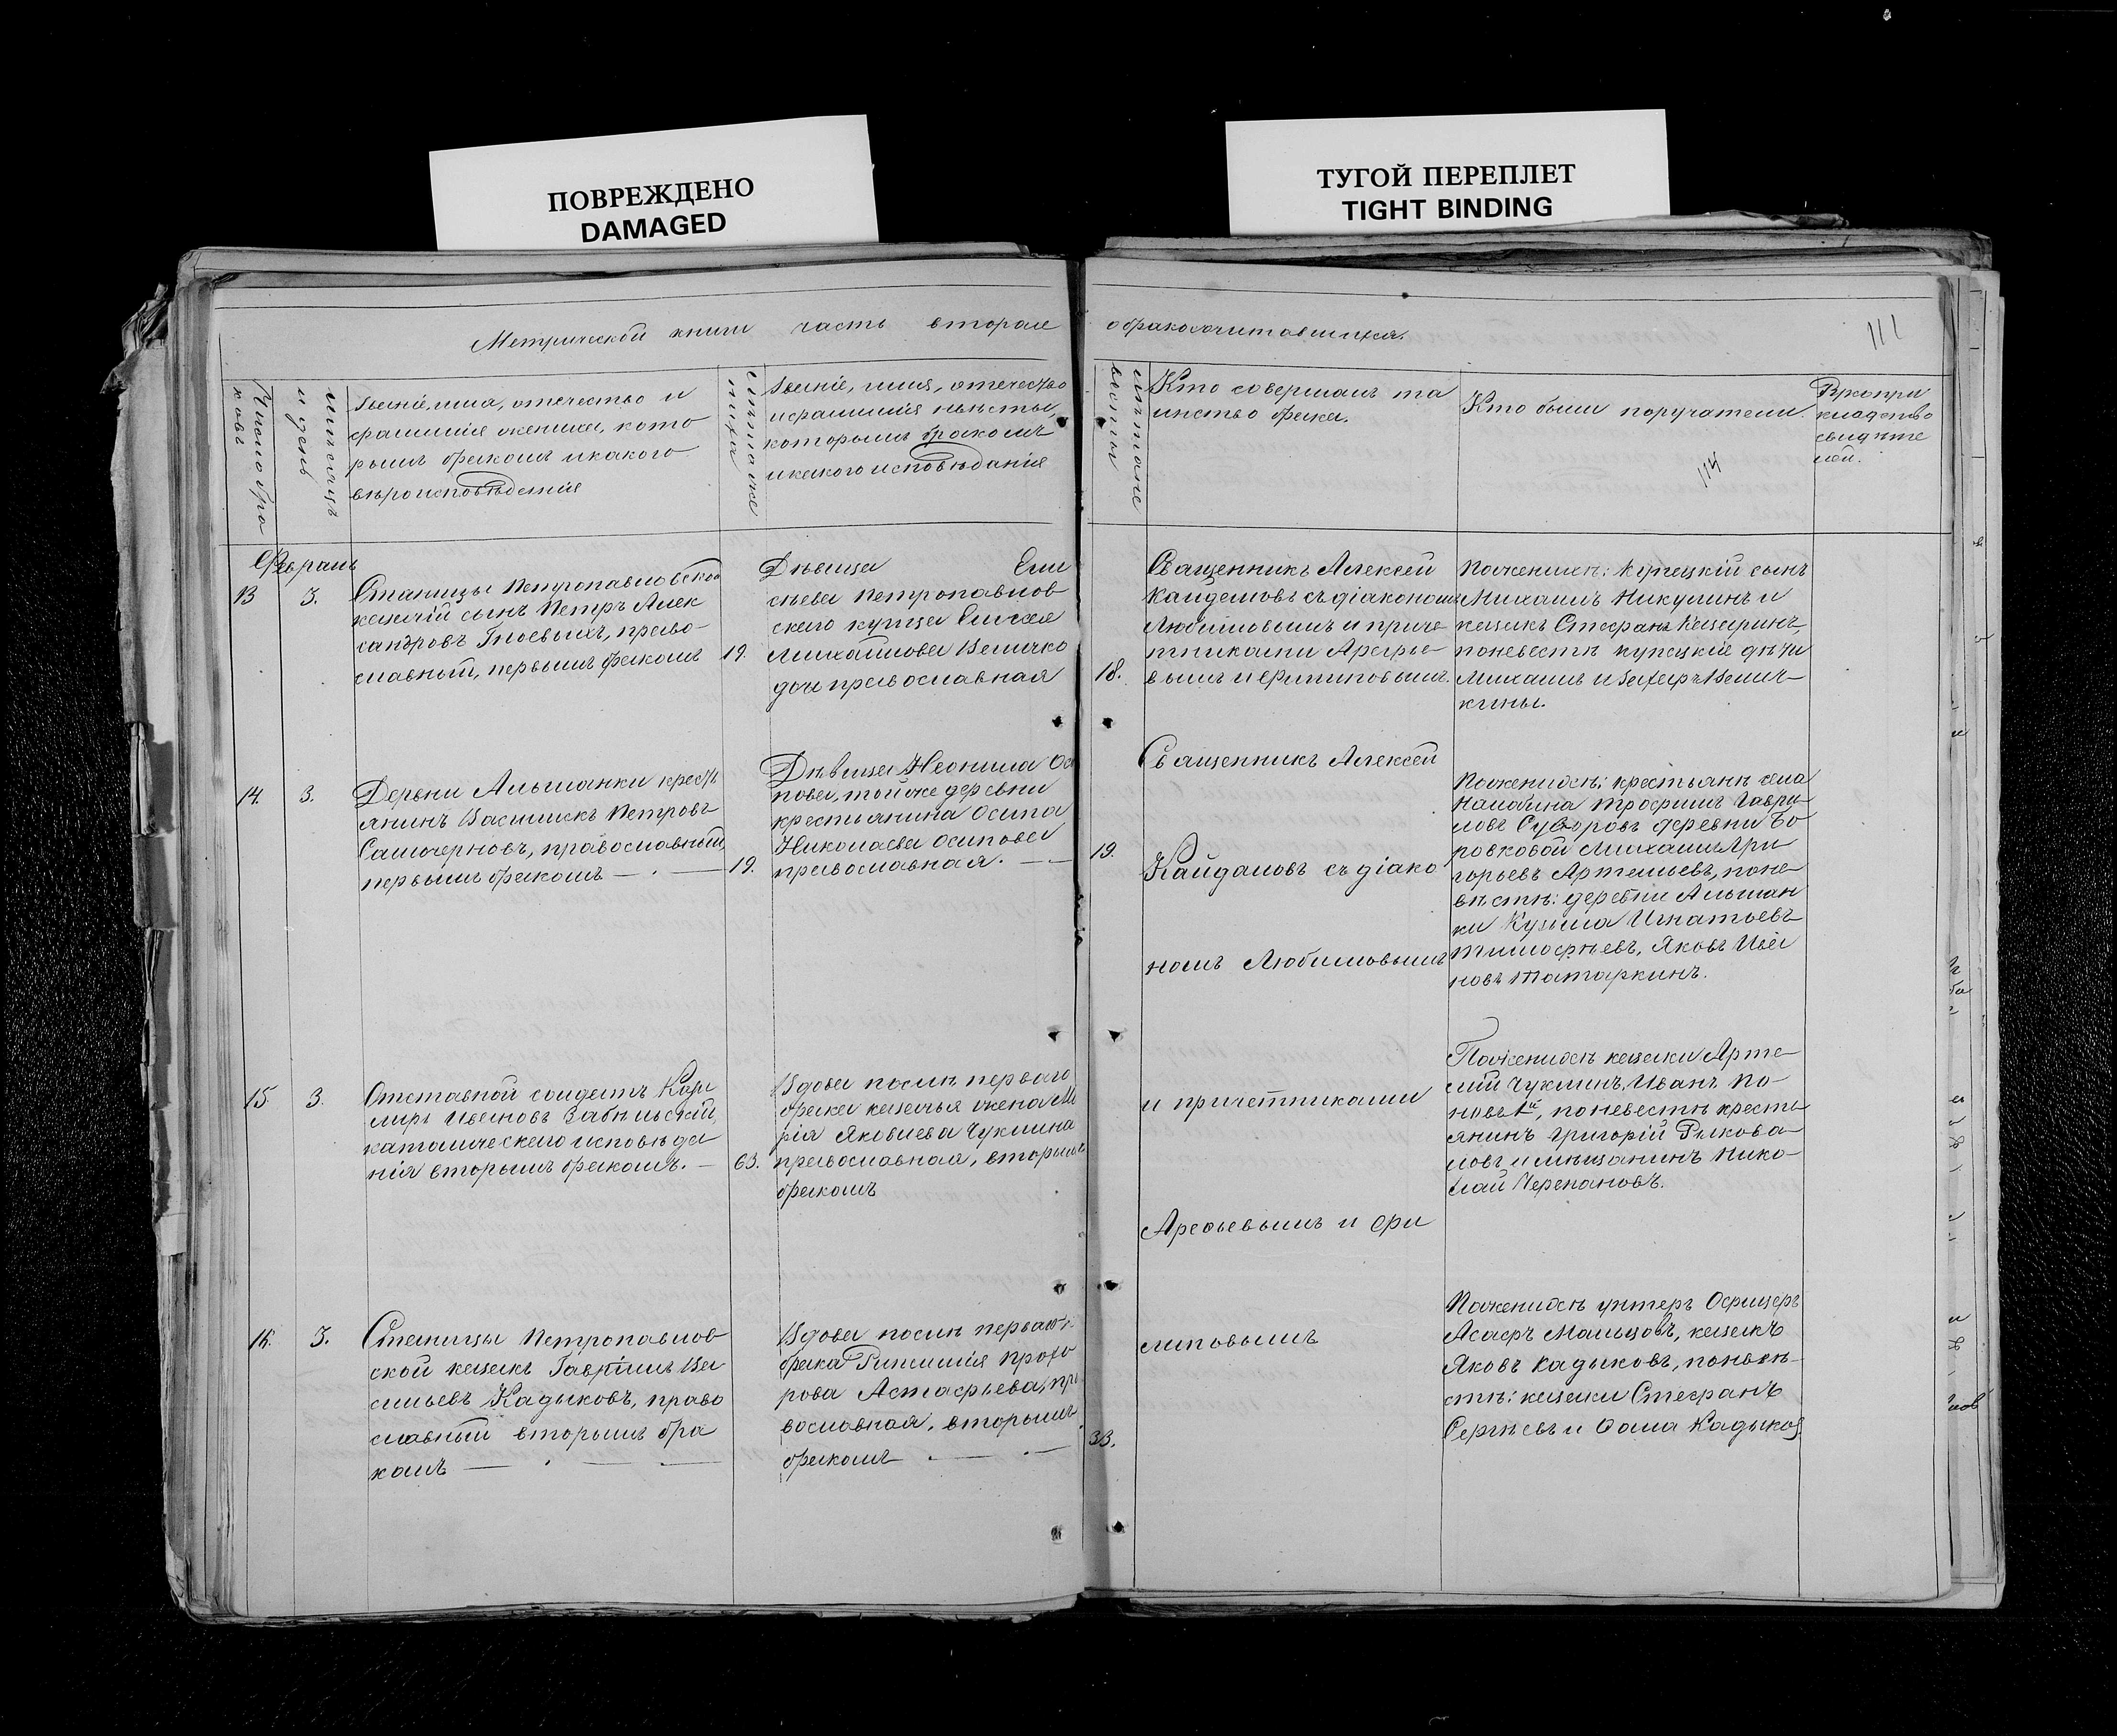 ПОВРЕЖДЕНО
DAMAGED
ТУГОЙ ПЕРЕПЛЕТ
TIGHT BINDING
Метрической книги часть вторая
о бракосочитавшихся.
111
Число бра
ковъ
мѣсяцъ
и день
Званіе, имя, отечество и
фамилія жениха, кото
рымъ бракомъ и какого
вѣроисповѣданія
лѣта же
ниха
Званіе, имя, отечество
и фамилія невѣсты,
которымъ бракомъ
и какого исповѣданія
лѣта не
вѣсты
Кто совершалъ та
инство брака.
Кто были поручатели.
114
Рукопри
кладство
свидѣте
лей.
Февраль
13
3.
Станицы Петропавловской
казачій сынъ Петръ Алек
сандровъ Гноевыхъ, право-
славный, первымъ бракомъ
19.
Дѣвица Ели
сѣева Петропавлов
скаго купца Елисея
Михайлова Величко
дочь православная
18.
Священникъ Алексей
Кайдаловъ съ діакономъ
Любимовымъ и приче
тниками Арефье-
вымъ и Филиповымъ.
Пожениху: купецкій сынъ
Михаилъ Никулинъ и
казакъ Стефанъ Кашаринъ,
поневестѣ купецкіе дѣти
Михаилъ и Велич-
кины.
14.
3.
Деревни Альшанки кресть
янинъ Василискъ Петровъ
Самочерновъ, православный
первымъ бракомъ
19.
Дѣвица Неонила Оси
пова, той же деревни
крестьянина Осипа
Николаева Осипова
православная.
19.
Священникъ Алексей
Кайдаловъ съ діако
номъ Любимовымъ
и причетниками
Арефьевымъ и Фи
липовымъ
Поженихѣ: крестьянѣ села
Налобина Трофимъ Гаври-
ловъ Суворовъ деревни Бо
ровковой Михаилъ Гри
горьевъ Артемьевъ, поне
вѣстѣ: деревни Альшан
ки Кузьма Игнатьевъ
Тимофѣевъ, Яковъ Ива
новъ Татаркинъ.
15
3.
Отставной солдатъ
Ивановъ Забѣльскій,
католическаго исповѣда
нія вторымъ бракомъ.
63.
Вдова послѣ перваго
брака казачья жена Ма
рія Яковлева Чукмина
православная, вторымъ
бракомъ
Поженихѣ казаки Арте-
мій Чукминъ, Иванъ По-
новъ, поневестѣ кресть
янинъ Григорій
ловъ и мѣщанинъ Нико-
лай Черепановъ.
16.
3.
Станицы Петропавлов
ской казакъ Гавріилъ Ва
сильевъ Кадыковъ, право
славный вторымъ бра
комъ
Вдова послѣ перваго
брака Прохо
рова Астафьева, пра
вославная, вторымъ
бракомъ
33.
Поженихѣ унтеръ Офицеръ
Асафъ Мальцовъ, казакъ
Яковъ Кадыковъ, поневѣ-
стѣ: казаки Стефанъ
Сергѣевъ и Фома Кадыков